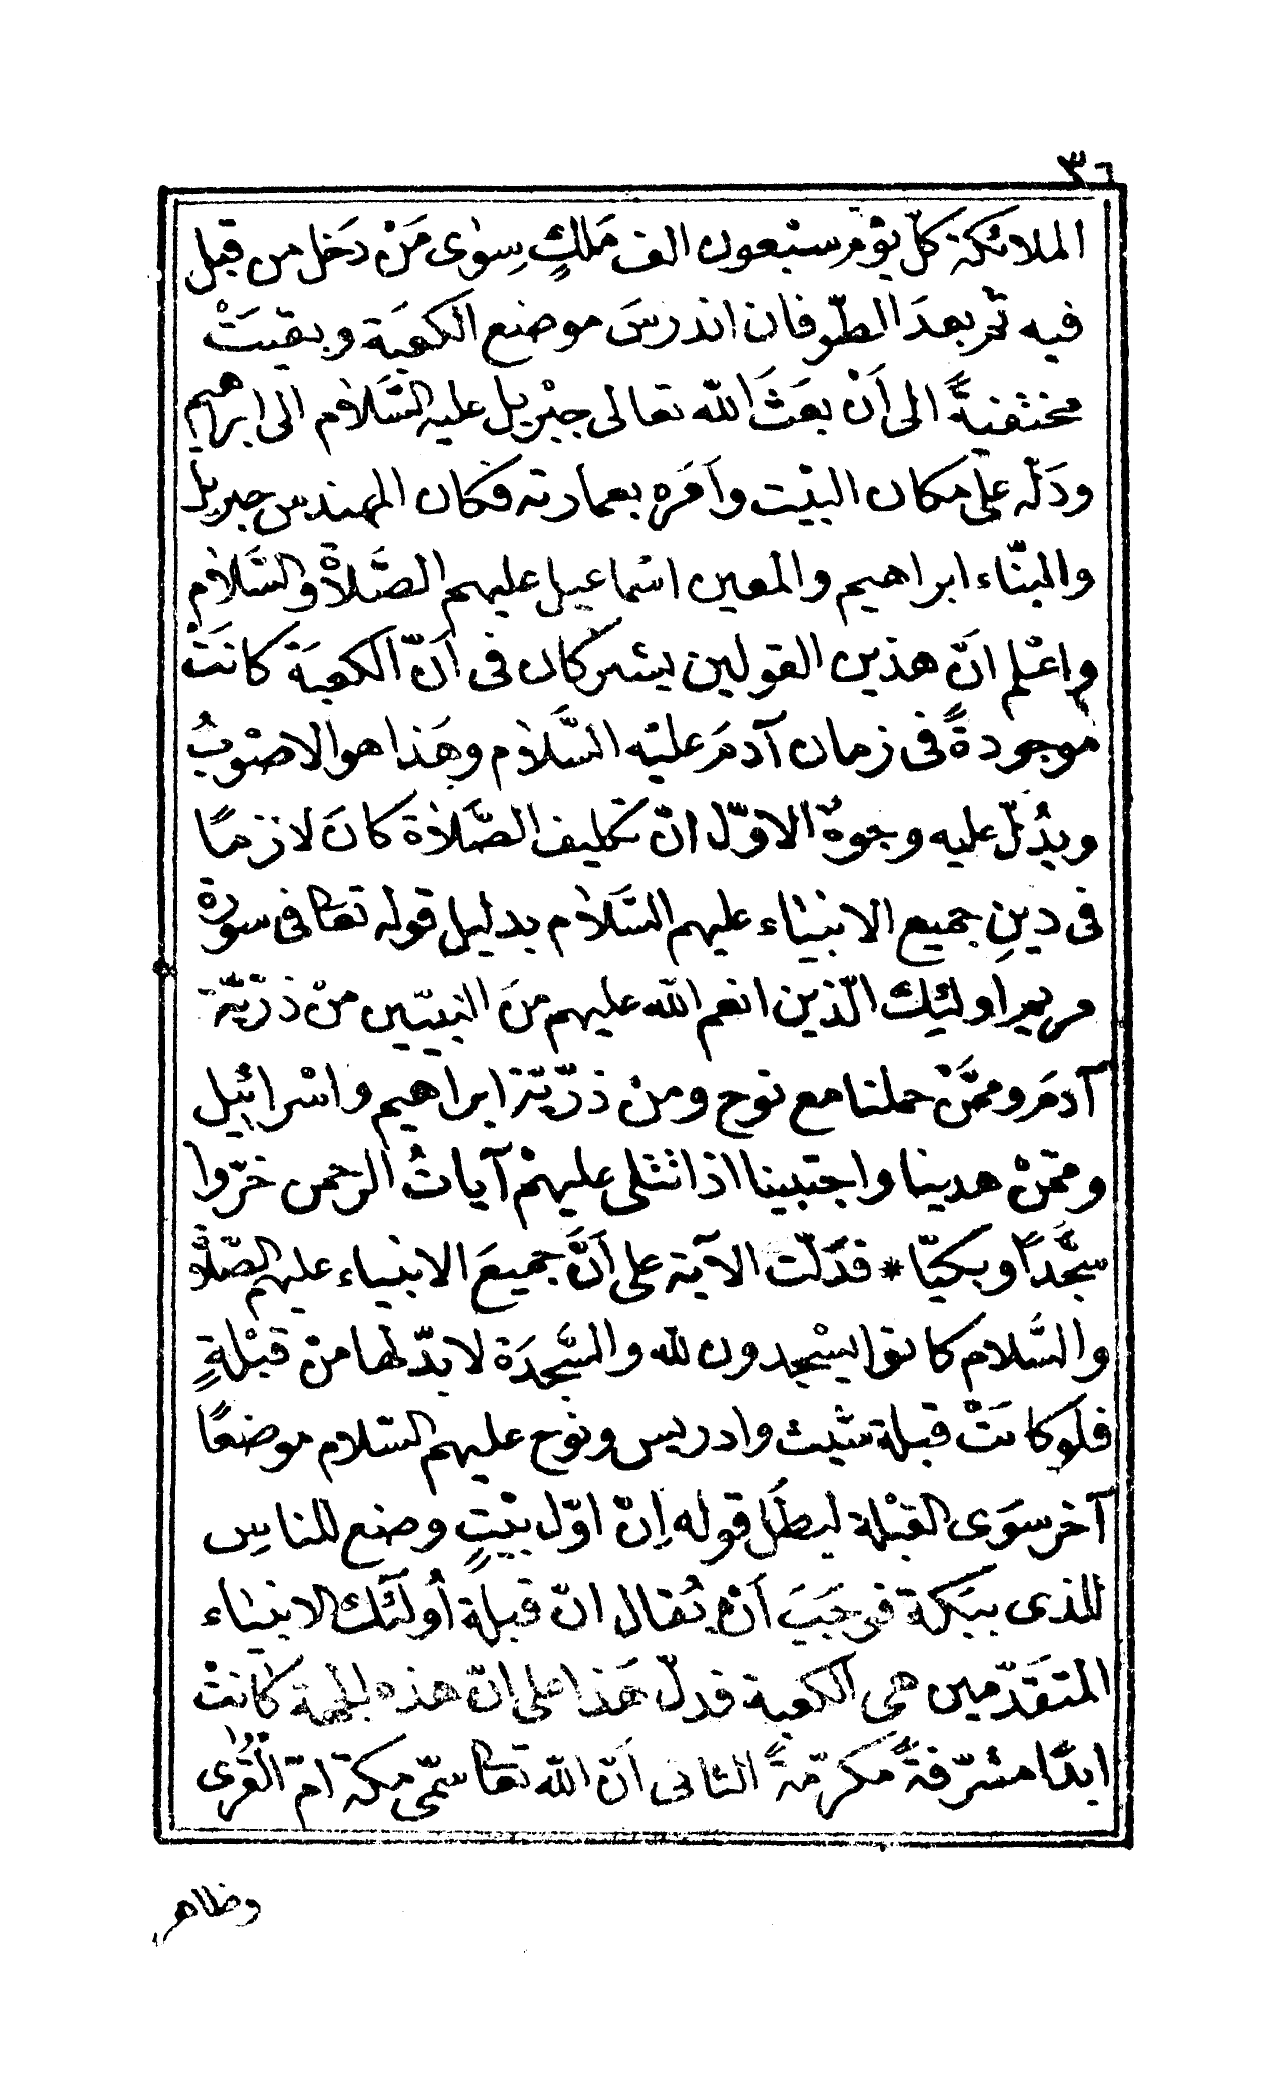 ٣٦
الملائكة كلّ يوْم سبْعون الف مَلَكٍ سِوٰى مَنْ دَخَل من قبل
فيه ثمّ بعدَ الطّوفان اندرسَ موضع الكعبَة وبقيَتْ
مختفيةً الى اَنْ بعَثَ اللّه تعالى جبْريل عليه السَّلَاٰم الى ابرهيم
ودَلّه على مكان البيْت واَمَره بعمارته فكان المهندس جبريل
والبنّاء ابراهيم والمعين اسْماعيل عليهم الصَّلاةْ والسَّلاٰم
واعْلم انّ هذين القولين يشتركان فى اَنّ الكعبَة كانَتْ
موجودةً فى زمان آدمَ عليْه السَّلاٰم وهَذا هو الاصْوبُ
ويدُلّ عليه وجوهٌ الاوّل انّ تكليف الصَّلاٰة كانَ لازمًا
فى دينِ جميع الانبيٰاء عليهم السَّلاٰم بدليل قوله تعا فى سورة
مريم اولئِك الّذين انعم اللّه عليهم منَ النبيّين منْ ذرّيّة
آدمَ وممَّنْ حملنا مع نوح ومنْ ذرّيّة ابراهيم واسْرائيل
وممّنْ هدينا واجتبينا اذا تتلى عليهمْ آياتُ الرحمن خرّوا
سجَّدًا وبكيّا * فدَلّت الآية على اَنَّ جميعَ الانبيٰاء عليهم الصّلاة
والسَّلام كانوا يسْجدون لله والسَّجدَة لا بدّ لها منْ قبْلةٍ
فلو كانَتْ قبلة شيث وادريس ونوح عليهم السّلام موضعًا
آخر سوَى القبْلة لبطَل قوله اِنّ اوّل بيْتٍ وضع للناسِ
للذى ببَكة فوجَبَ اَنْ يُقال انّ قبلة أولٰئك الانبيٰاء
المتقَدّمين هى الكعبة فدلّ هَذا على انّ هذه الجهة كانتْ
ابدًا مشرّفةً مكرّمةً الثانى اَنّ اللّه تعا سمّى مكة امّ الْقُرٰى
وظاهر